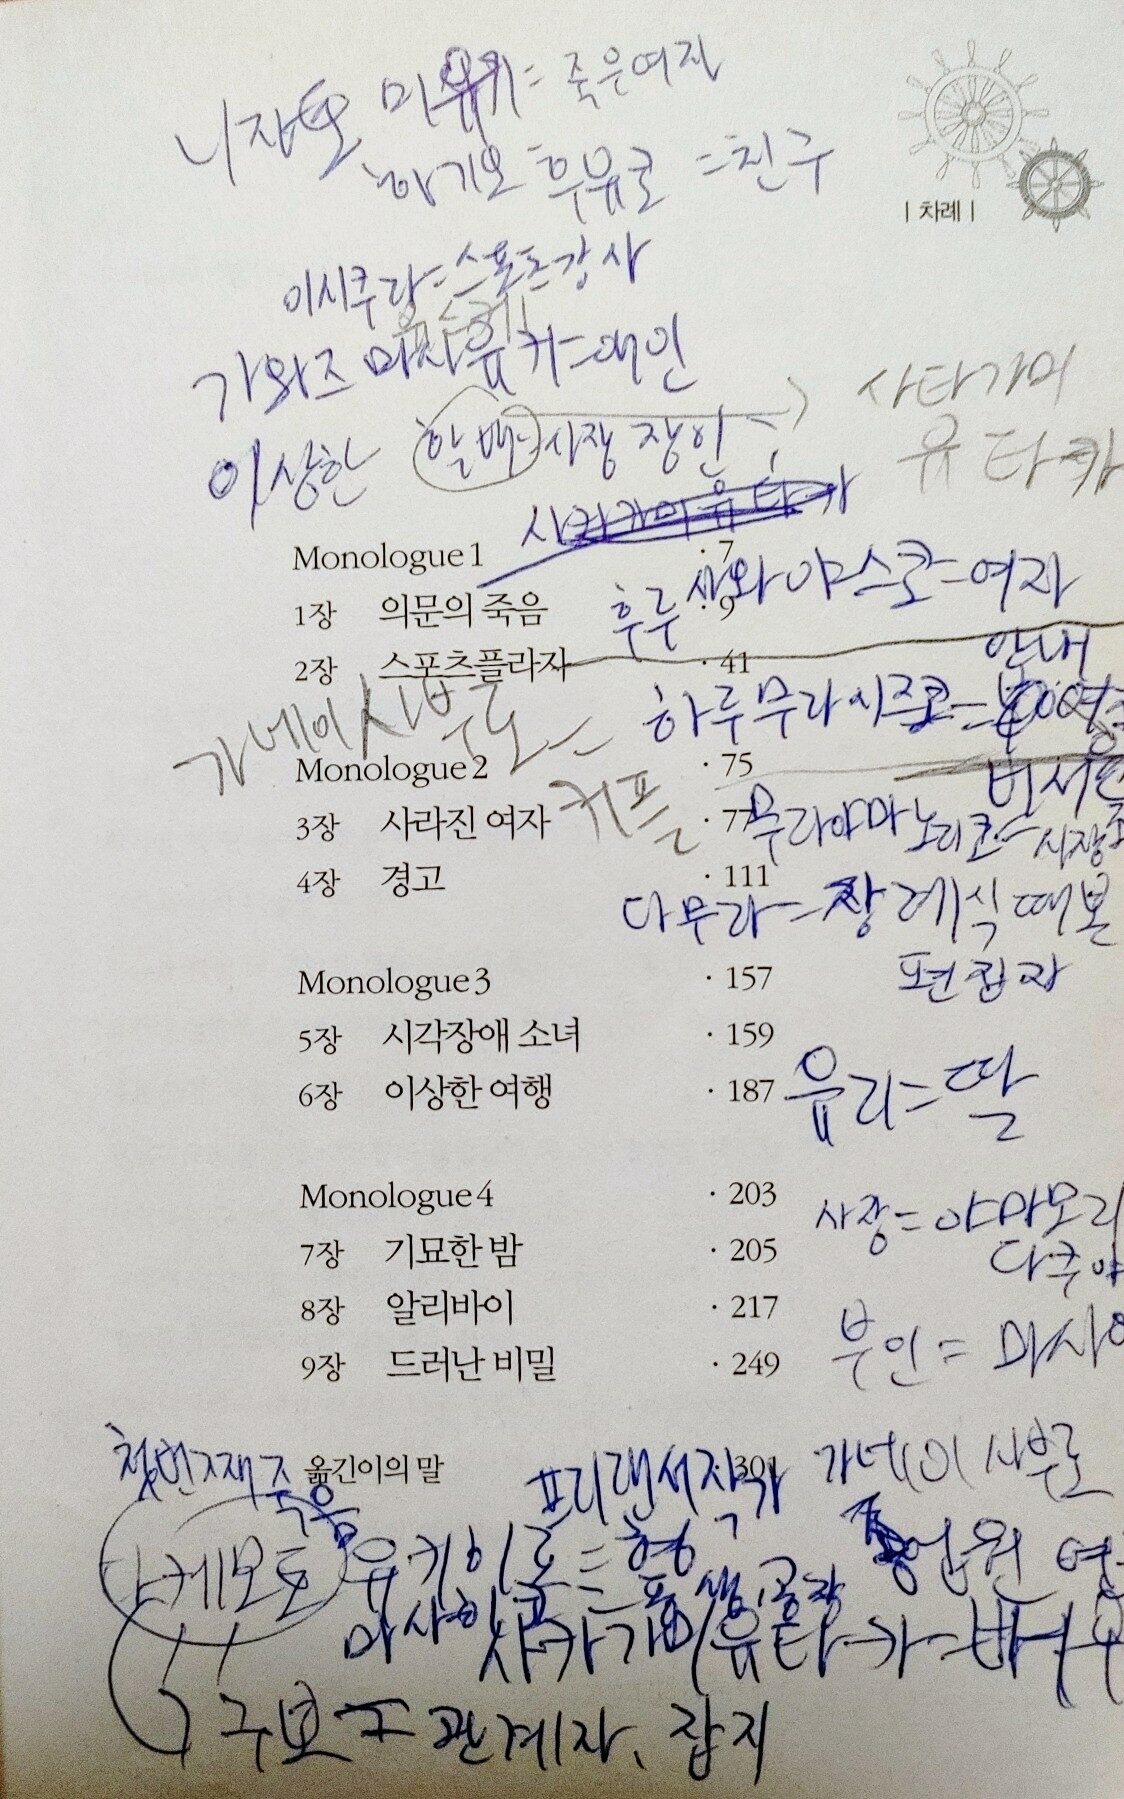 니자토 미유키=죽은여자
하기오 후유코 =친구
| 차례 |
이시쿠라=스포츠강사
가와즈 마사유키=애인
이상한 할배=시장 장인
사타가미
유타카
사카가미유타카
Monologue1 · 7
후루사와 야스코=여자
1장 의문의 죽음 · 9
2장 스포츠플라자 · 41
안내
하루무라시즈코=
가네이사부로=
커플
Monologue2 · 75
3장 사라진 여자 · 77
무라야마 노리코=
4장 경고 · 111
다무라=장례식때본
편집자
Monologue3 · 157
5장 시각장애 소녀 · 159
6장 이상한 여행 · 187
유리=딸
Monologue4 · 203
사장=야마모리
다쿠야
7장 기묘한 밤 · 205
8장 알리바이 · 217
부인=마사에
9장 드러난 비밀 · 249
첫번째죽음
옮긴이의 말 · 301
프리랜서작가
가네이 사부로
종업원
다케모토 유키히로=형
마사히코=동생,공장
사카가미유타카=배우
구보=관계자, 잡지